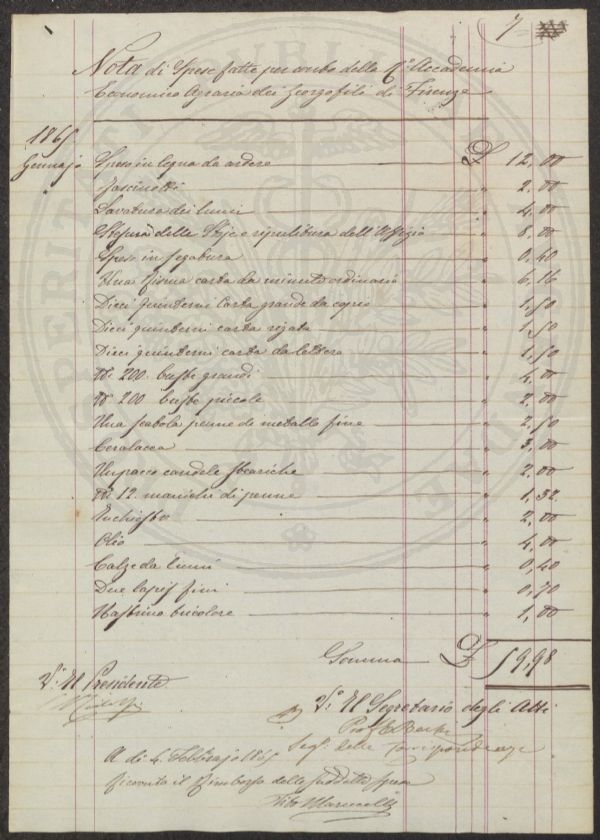 7
Nota di Spese fatte per conto della R. Accademia
Economico Agraria dei Georgofili di Firenze
1865
Gennajo Spese in legna da ardere £ 12,00
Fascinotti " 2,00
Lavatura dei lumi " 4,00
Stesura delle Stoje e ripulitura dell'Uffizio " 8,00
Spese in Segatura " 0,40
Una risma carta da minute ordinaria " 6,16
Dieci quinterni Carta grande da copie " 1,50
Dieci quinterni carta rigata " 1,50
Dieci quinterni carta da lettere " 1,50
N° 200 buste grandi " 4,00
N° 200 buste piccole " 2,00
Una scatola penne di metallo fine " 2,50
Ceralacca " 3,00
Un pacco candele steariche " 2,00
N° 12 manichi di penne " 1,32
Inchiostro " 2,00
Olio " 4,00
Calze da lumi " 0,40
Due lapis fini " 0,70
Nastrino tricolore " 1,00
Somma £ 59,98
V° Il Presidente
V° Il Segretario degli Atti
Seg. delle Corrispondenze
A dì 4 Febbrajo 1865
Ricevuto il rimborso delle suddette spese